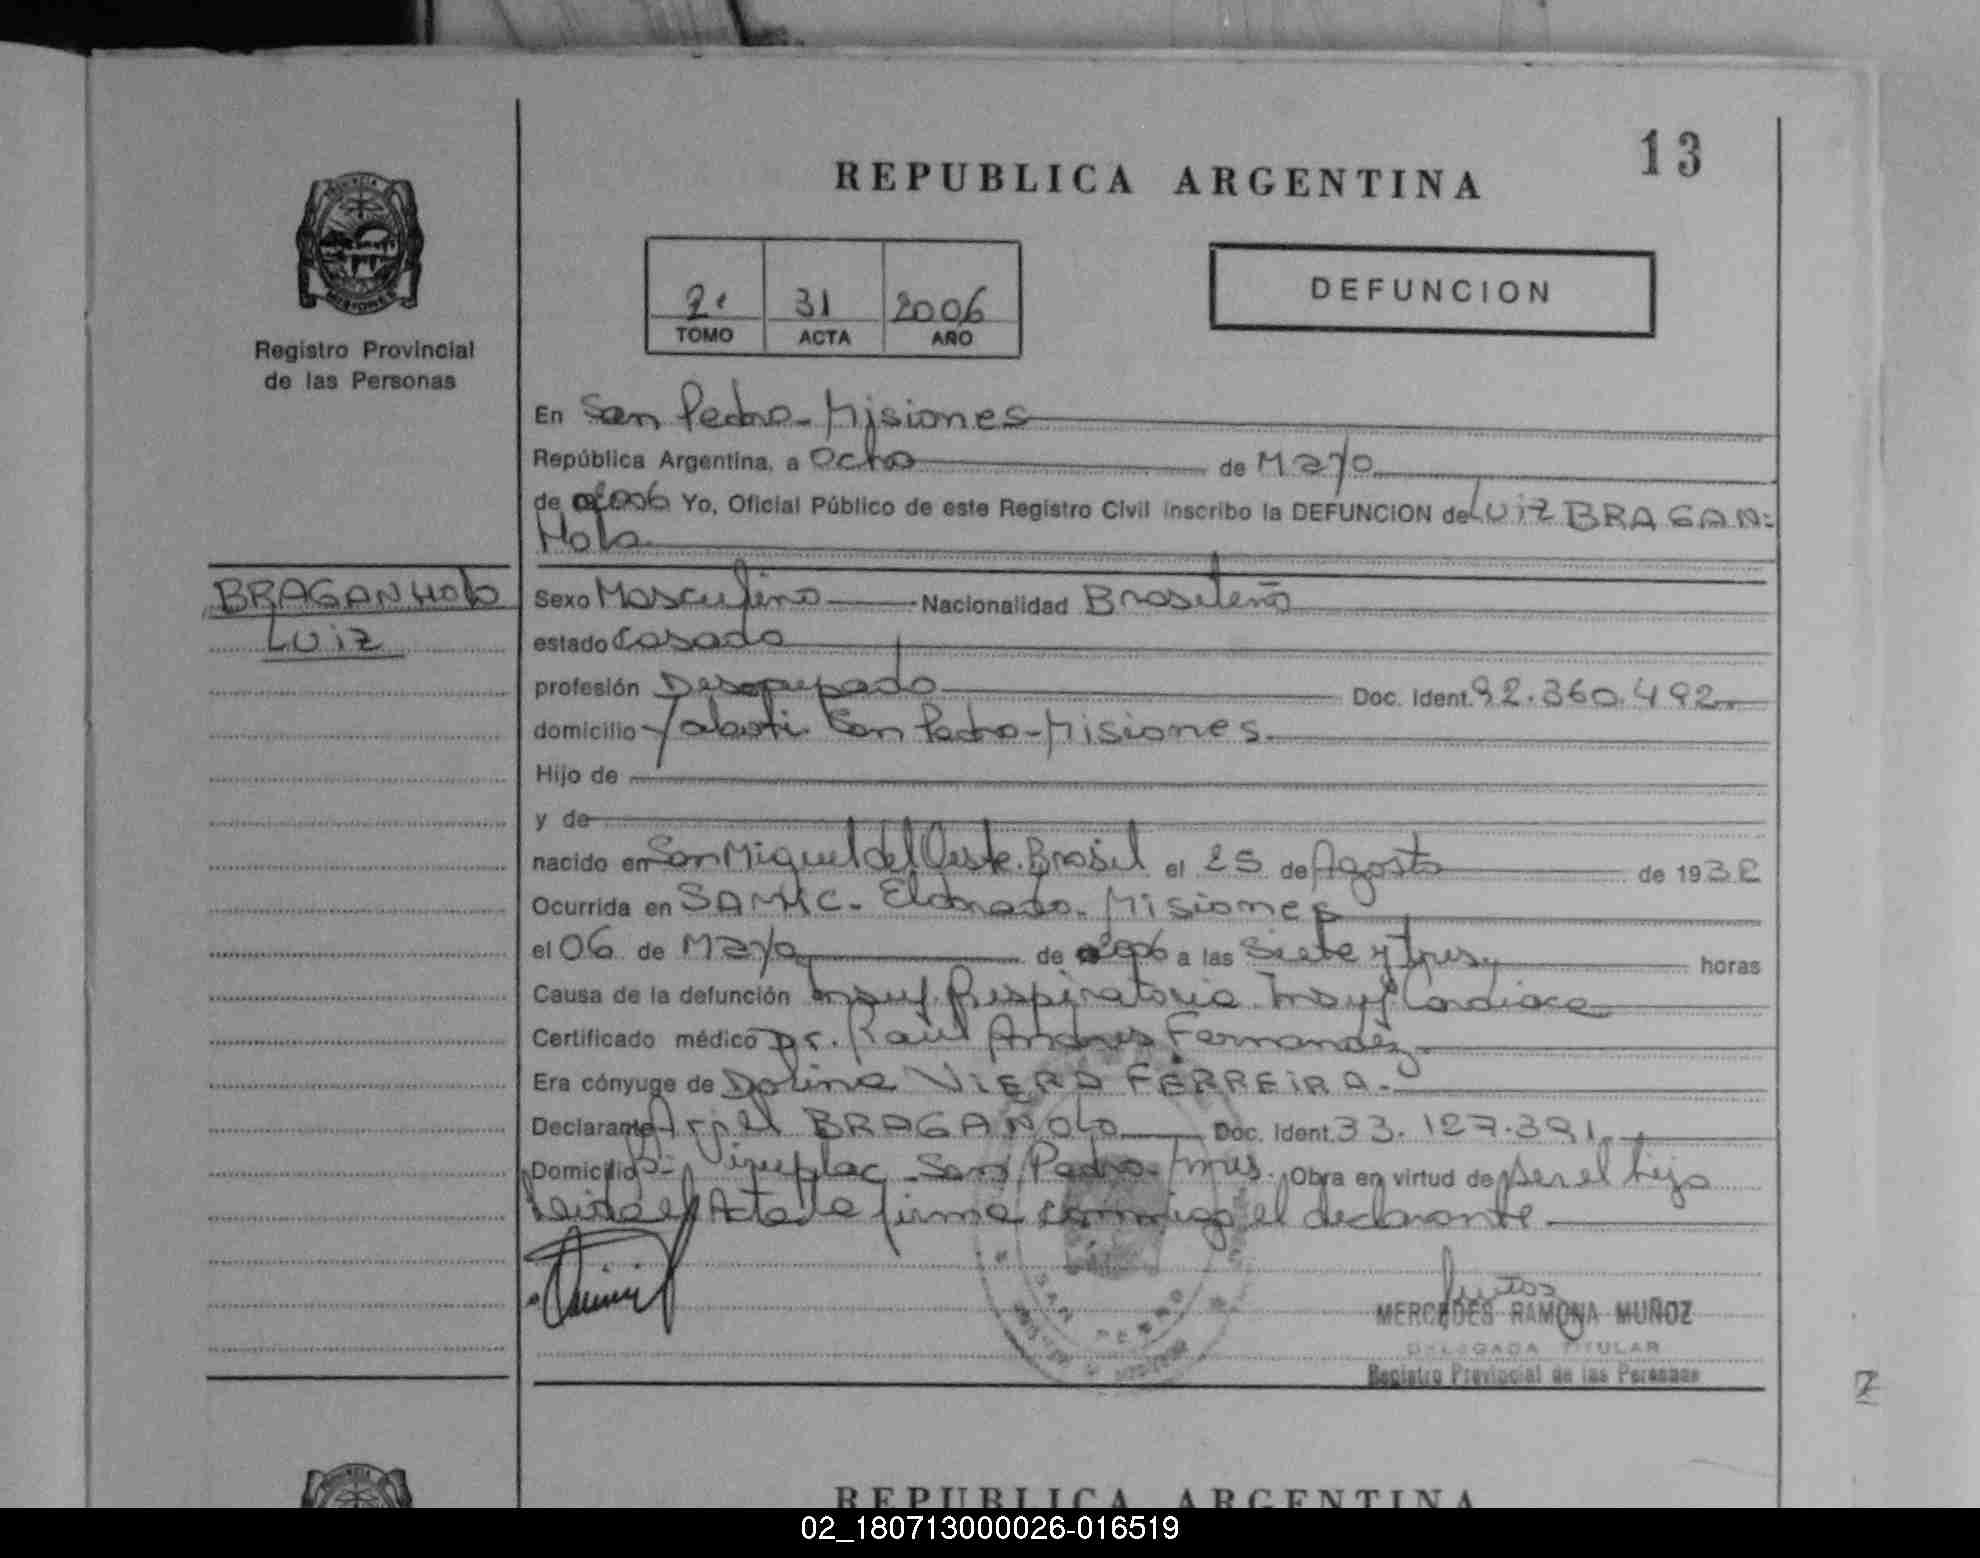 13
REPUBLICA ARGENTINA
DEFUNCION
2º 31 2006
TOMO ACTA AÑO
Registro Provincial
de las Personas
En San Pedro - Misiones
República Argentina, a Ocho de Mayo
de 2006 Yo, Oficial Público de este Registro Civil inscribo la DEFUNCION de LUIZ BRAGAN-
Holo
BRAGANHOLO
LUIZ
Sexo Masculino Nacionalidad Brasileño
estado Casado
profesión Desocupado Doc. Ident. 92.360.492
domicilio Yaboti San Pedro - Misiones.
Hijo de
y de
nacido en San Miguel del Oeste. Brasil el 25 de Agosto de 1932
Ocurrida en SAMIC - Eldorado - Misiones
el 06 de Mayo de 2006 a las Siete y tres horas
Causa de la defunción Insuf. Respiratoria. Insuf Cardiaca
Certificado médico Dr. Raul Andres Fernandez.
Era cónyuge de Dolina VIERA FERREIRA.
Declarante Ariel BRAGANOLO Doc. Ident. 33.127.391
Domicilio San Pedro - Mnes. Obra en virtud de ser el hijo
leida el Acta la firma conmigo el declarante
SAN PEDRO
MERCEDES RAMONA MUÑOZ
DELEGADA TITULAR
Registro Provincial de las Personas
REPUBLICA ARGENTINA
02_180713000026-016519